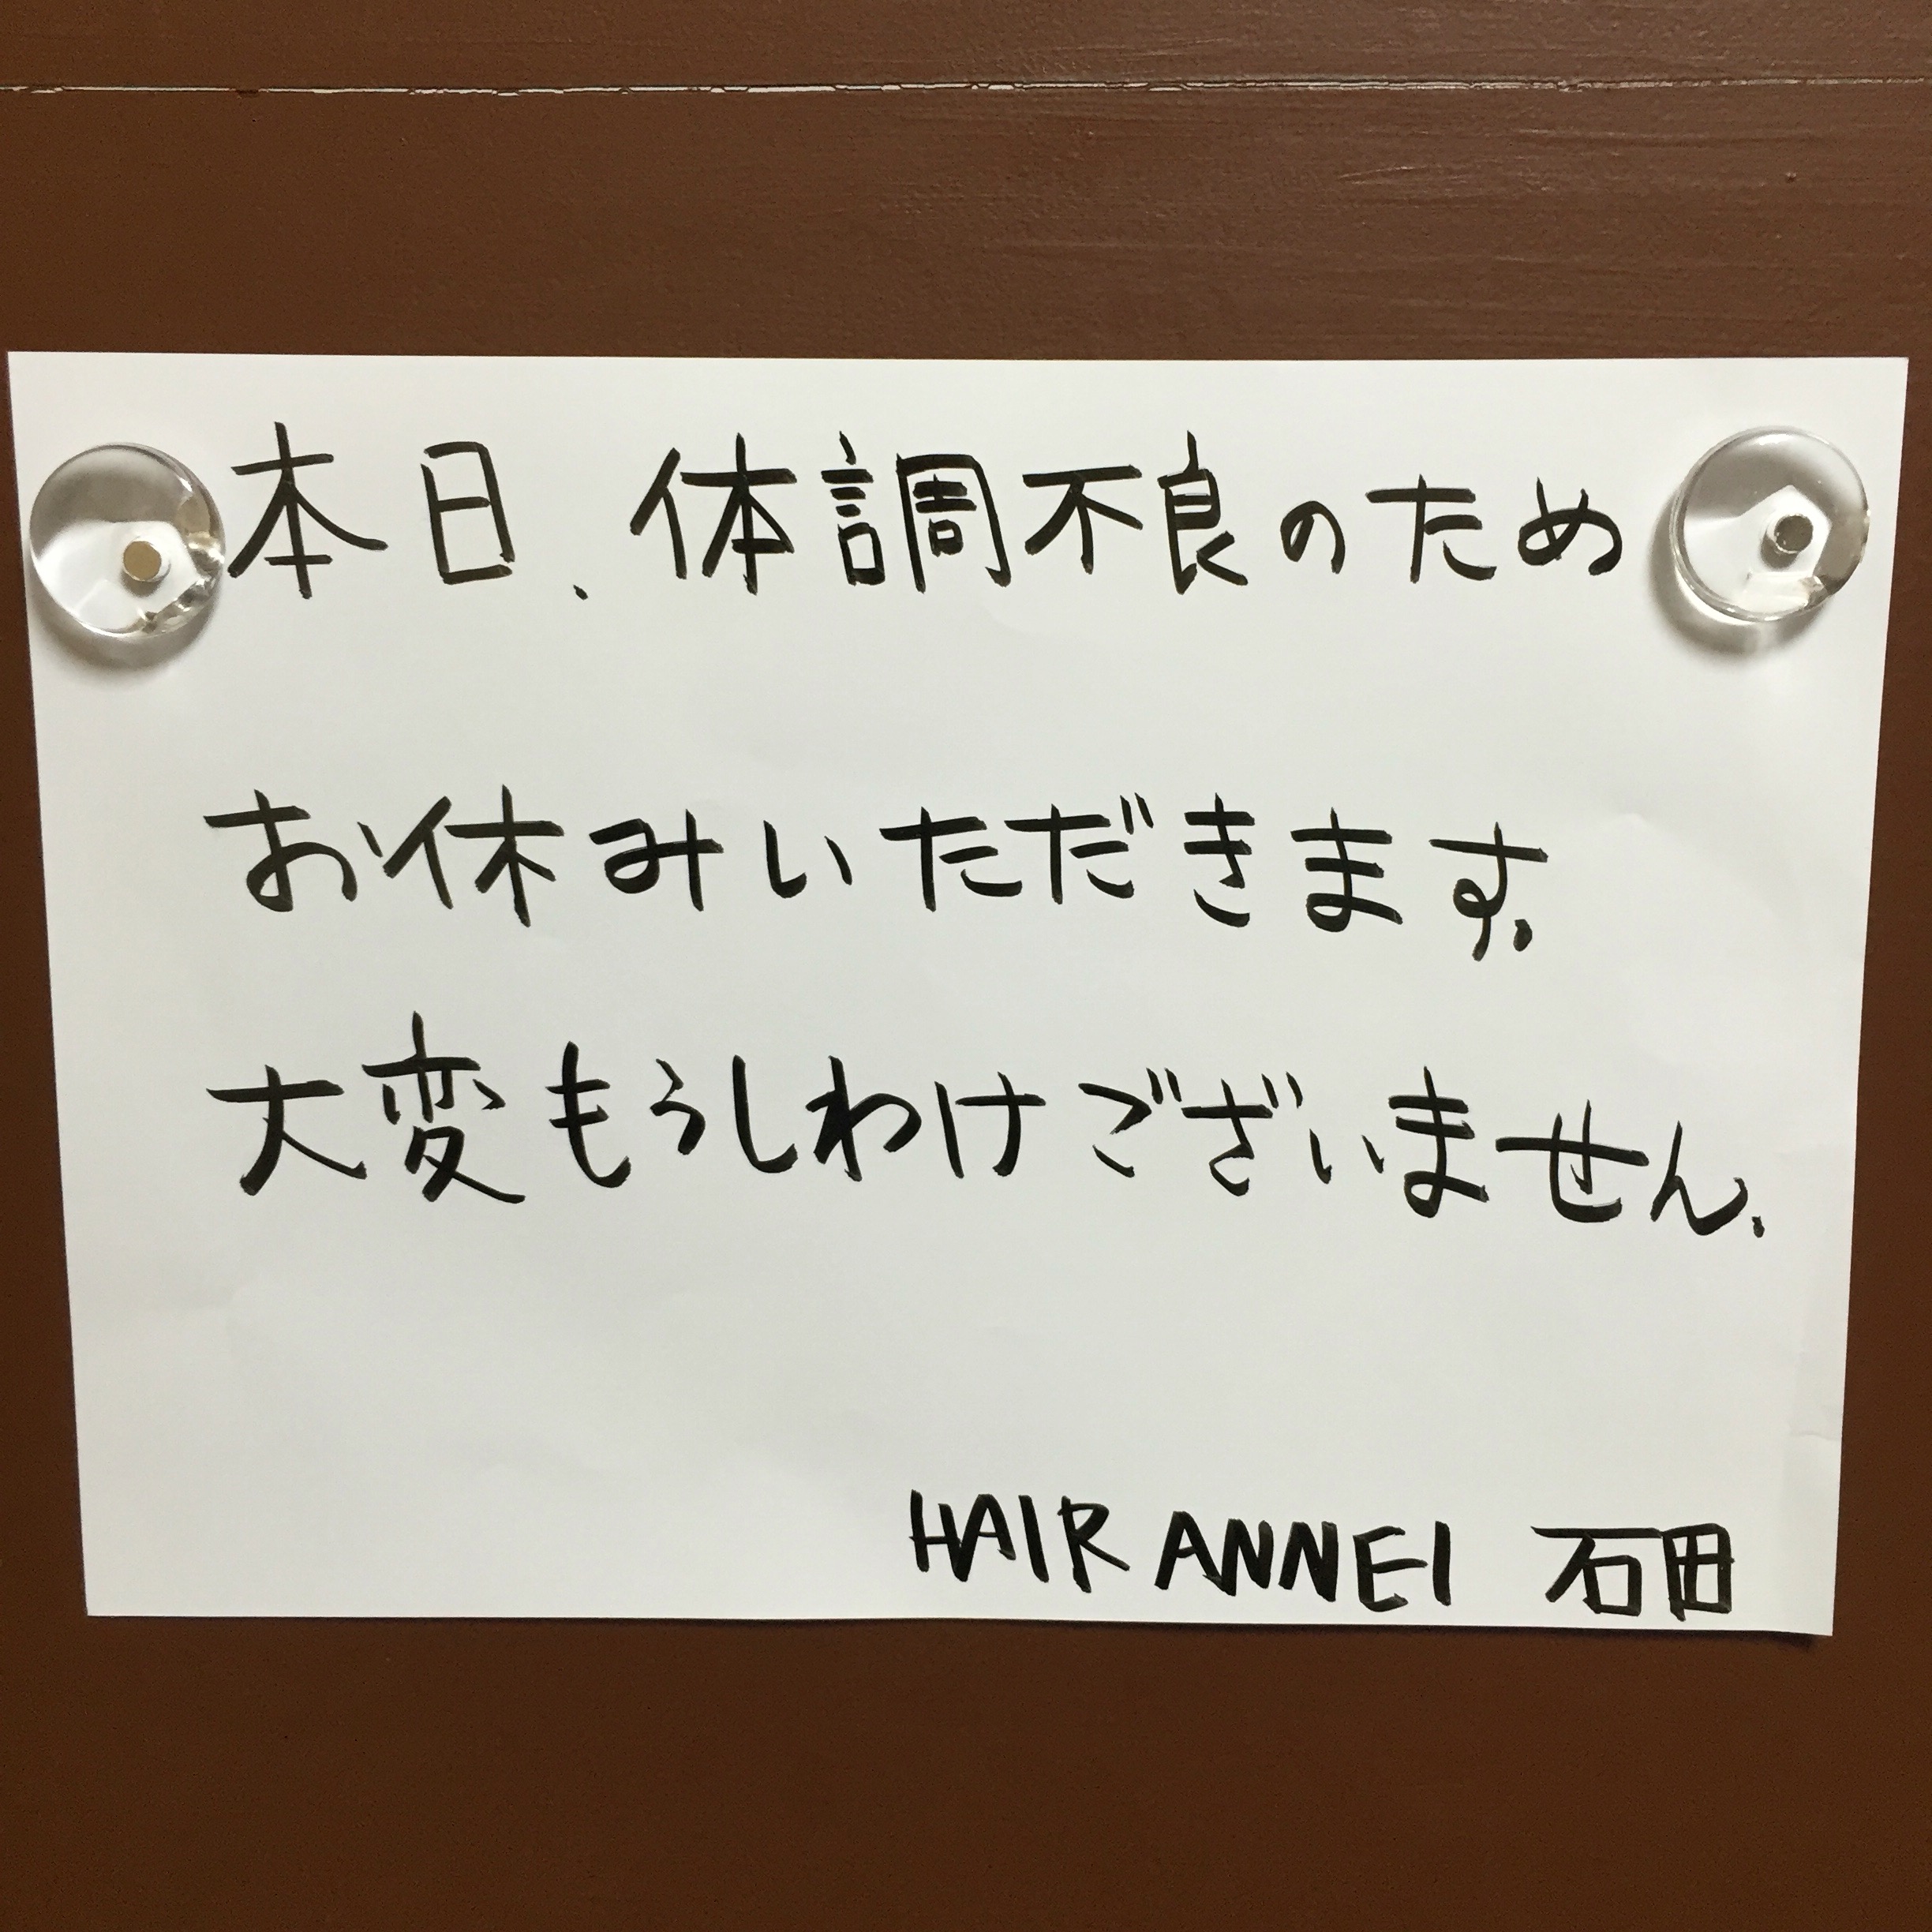 本日、体調不良のため
お休みいただきます.
大変もうしわけございません.
HAIR ANNEI 石田